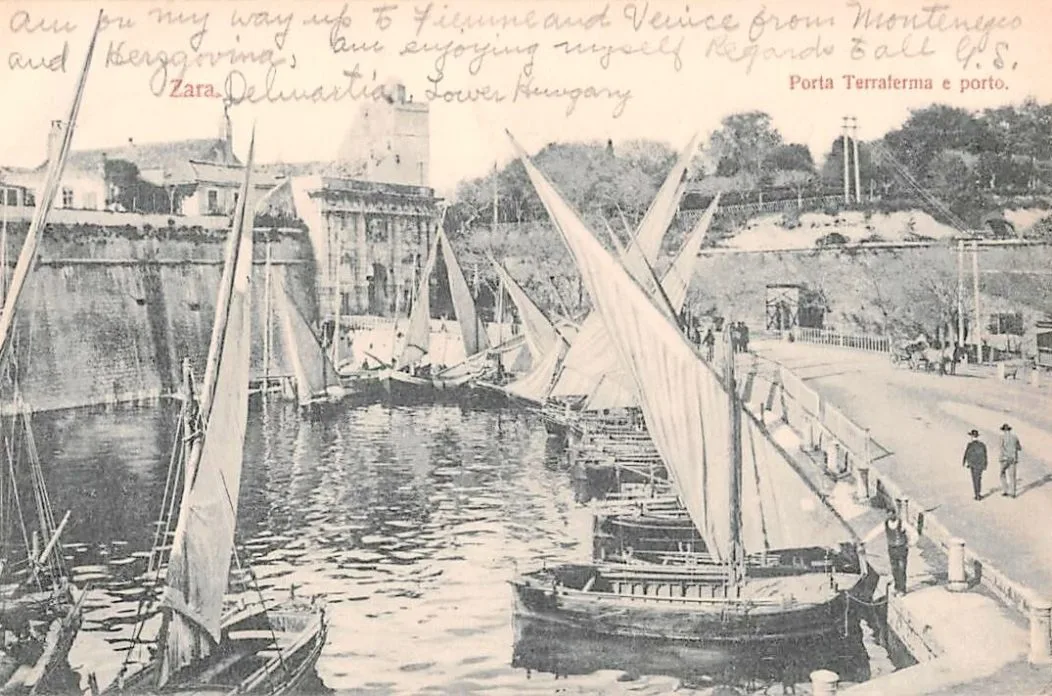 am on my way up to Fiumme and Venice from Montenegro
and Herzgovina, am enjoying myself Regards to all G.S.
Zara. Delmartia. Lower Hungary
Porta Terraferma e porto.